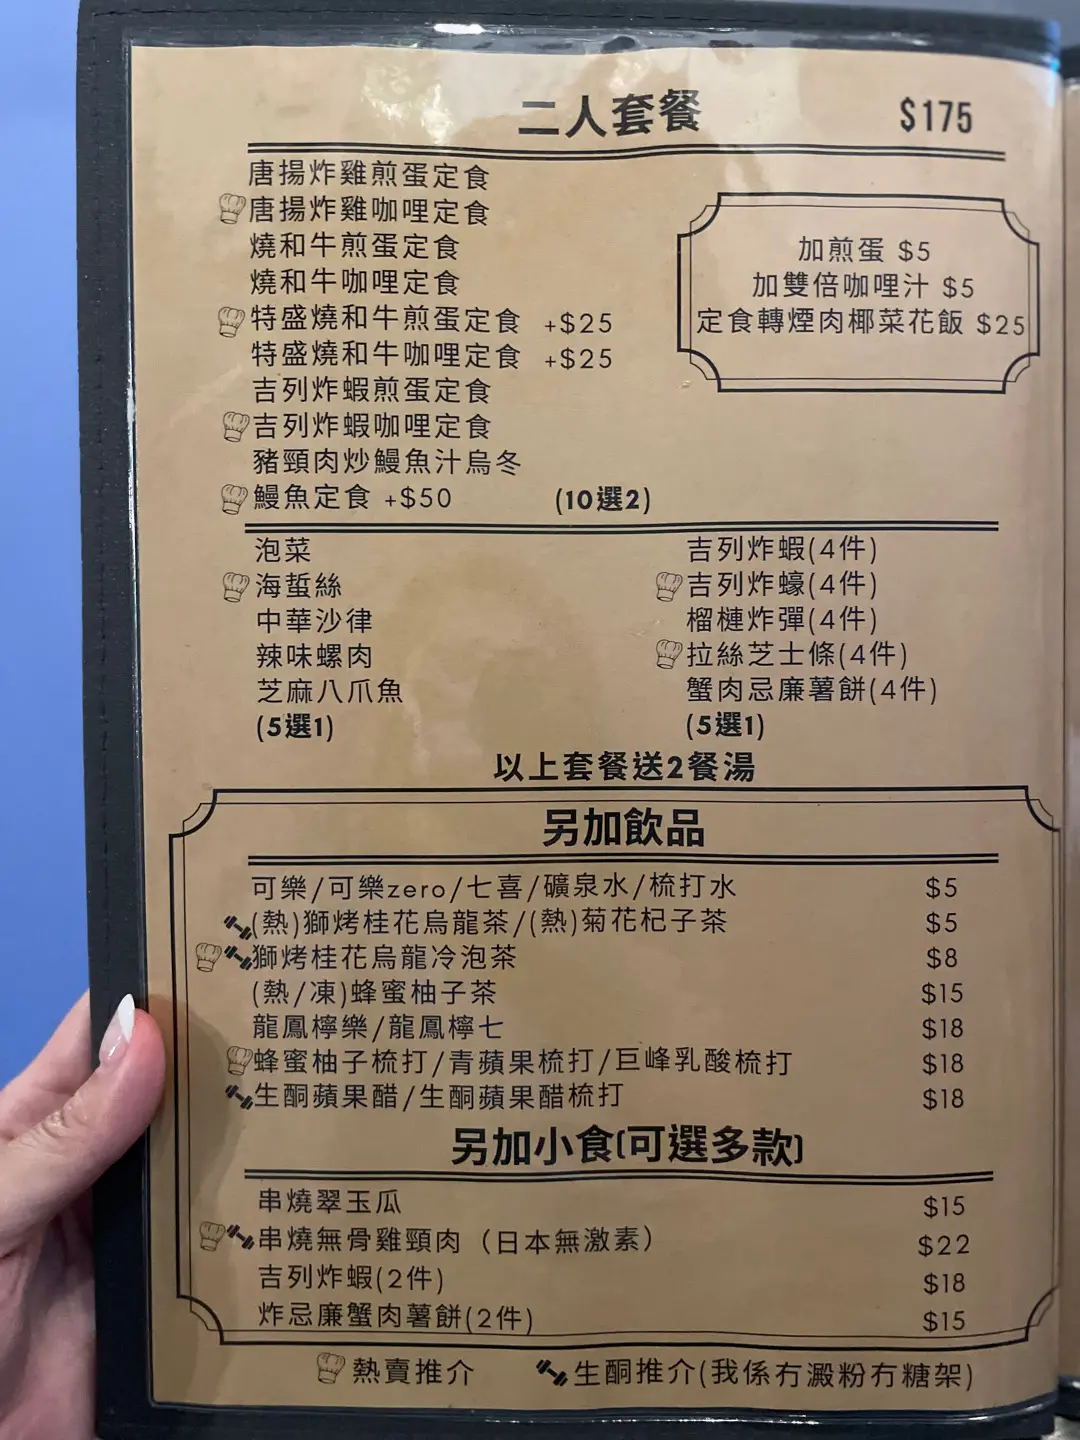 二人套餐 $175
唐揚炸雞煎蛋定食
唐揚炸雞咖哩定食
燒和牛煎蛋定食
燒和牛咖哩定食
特盛燒和牛煎蛋定食 +$25
特盛燒和牛咖哩定食 +$25
吉列炸蝦煎蛋定食
吉列炸蝦咖哩定食
豬頸肉炒鰻魚汁烏冬
鰻魚定食 +$50 (10選2)
加煎蛋 $5
加雙倍咖哩汁 $5
定食轉煙肉椰菜花飯 $25
泡菜
海蜇絲
中華沙律
辣味螺肉
芝麻八爪魚
(5選1)
吉列炸蝦(4件)
吉列炸蠔(4件)
榴槤炸彈(4件)
拉絲芝士條(4件)
蟹肉忌廉薯餅(4件)
(5選1)
以上套餐送2餐湯
另加飲品
可樂/可樂zero/七喜/礦泉水/梳打水 $5
(熱)獅烤桂花烏龍茶/(熱)菊花杞子茶 $5
獅烤桂花烏龍冷泡茶 $8
(熱/凍)蜂蜜柚子茶 $15
龍鳳檸樂/龍鳳檸七 $18
蜂蜜柚子梳打/青蘋果梳打/巨峰乳酸梳打 $18
生酮蘋果醋/生酮蘋果醋梳打 $18
另加小食(可選多款)
串燒翠玉瓜 $15
串燒無骨雞頸肉（日本無激素） $22
吉列炸蝦(2件) $18
炸忌廉蟹肉薯餅(2件) $15
熱賣推介 生酮推介(我係冇澱粉冇糖架)